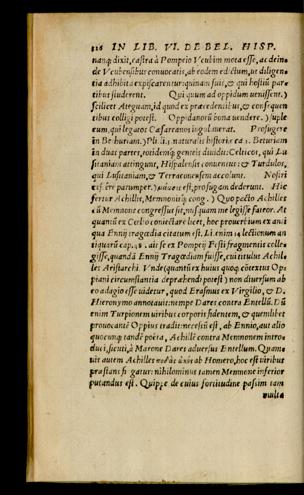 326 IN LIB. VI. DE BEL. HISP.
nanq; dixit, castra à Pompeio Vcubim mota esse, ac deinde
de Vcubensibus conuocatis, ab eodem edictum, ut diligen
tia adhibita expiscarentur: quinam suis, & qui hostiū par
tibus studerent. Qui quum ad oppidum uenissent.)
scilicet Ateguam, id quod ex præcedentibus, & consequen
tibus colligi potest. Oppidanorū bona uendere.) supple
eum, qui legatos Cæsareanos iugulauerat. Profugere
in Bethuriam.) Plinij naturalis historiæ Beturiam
in duas partes, totidemq; gentes diuidit: Celticos, qui Lu
sitaniam attingunt, Hispalensis conuentus: & Turdulos,
qui Lusitaniam, & Tarraconensem accolunt. Nostri
cessere parumper.) est, profugam dederunt. Hic
fertur Achilles, Memnonisq; cong.) Quo pacto Achilles
cū Memnone congressus sit, nusquam me legisse fateor. At
quantū ex Cælio coniectare licet, hoc prouerbium ex anti
qua Ennij tragœdia citatum est. Li. enim 14 lectionum an
tiquarū cap. ait se ex Pompeij Festi fragmentis colle
gisse, quandā Ennij Tragœdiam fuisse, cui titulus Achil
les Aristarchi. Vnde (quantū ex huius quoq; cōtextus Op
piani circumstantia deprehendi potest) non diuersum ab
eo adagio esse uidetur, quod Erasmus ex Virgilio, & D.
Hieronymo annotauit: nempe Dares contra Entellū. Dū
enim Turpionem uiribus corporis fidentem, & quemlibet
prouocantē Oppius tradit: necessū est, ab Ennio, aut alio
quocunq; tandē poëta, Achillē contra Memnonem intro-
duci, sicuti, à Marone Dares aduersus Entellum. Quam-
uis autem Achilles ab Homero, hoc est uiribus
præstans fingatur: nihilominus tamen Memnone inferior
putandus est. Quippe de cuius fortitudine passim tam
multa